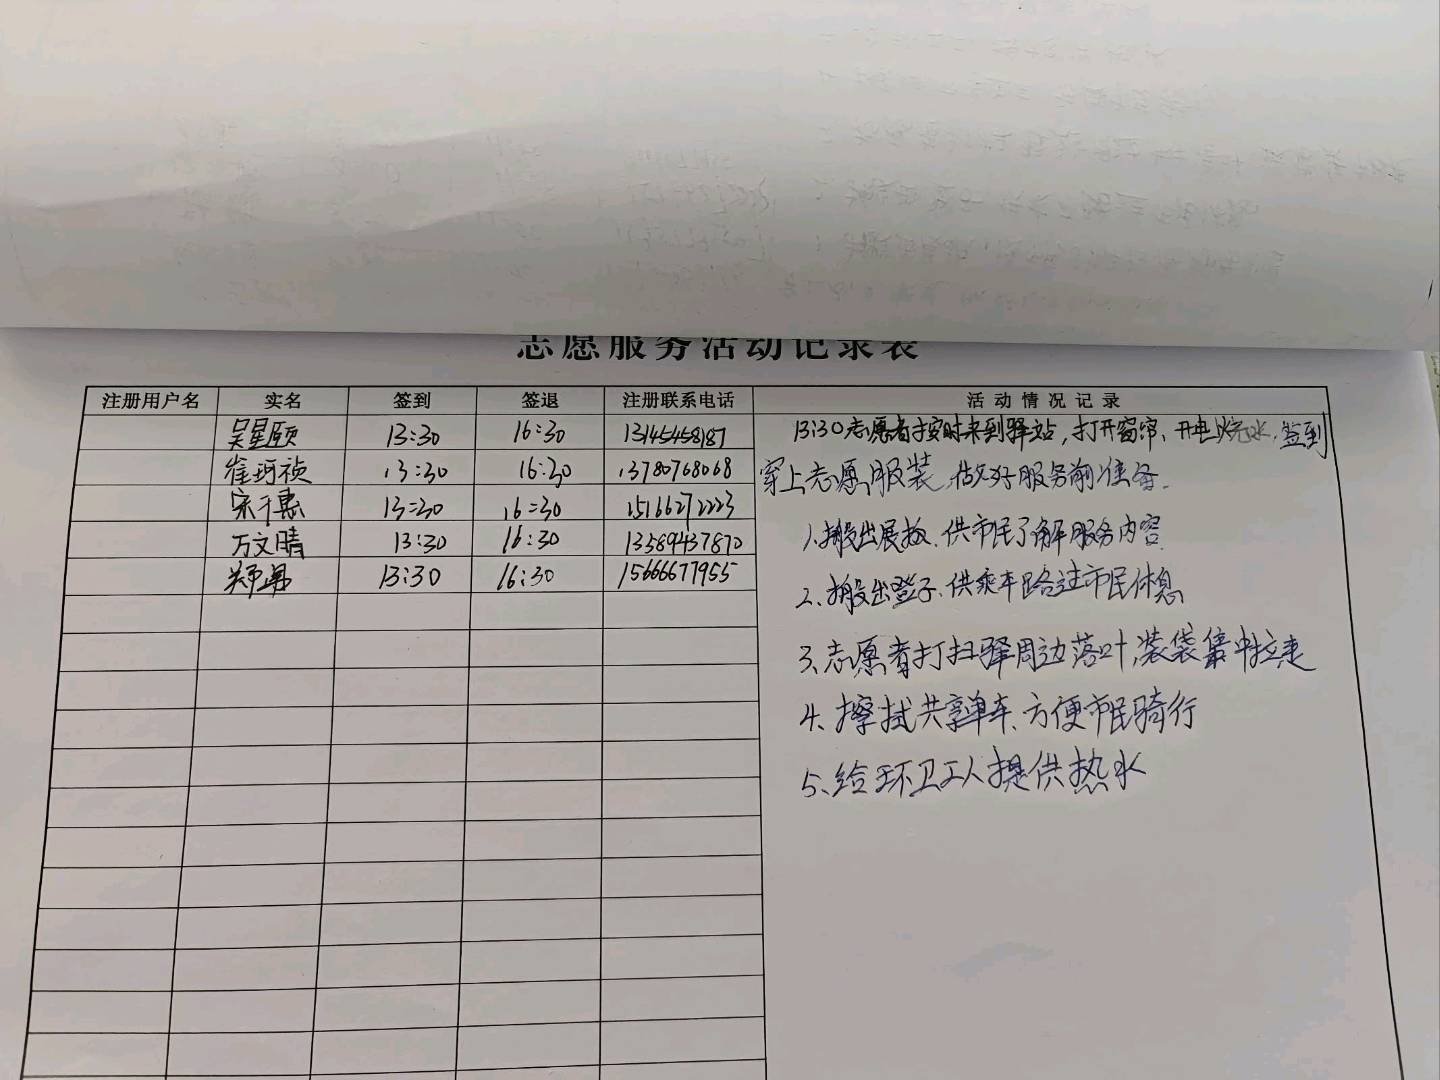 志愿服务活动记录表
注册用户名 实名 签到 签退 注册联系电话 活动情况记录
吴星颐 13:30 16:30 13145458187
崔珂祯 13:30 16:30 13780768068
宋千惠 13:30 16:30 15166272223
万文晴 13:30 16:30 13589437870
13:30 16:30 15666677955
13:30志愿者按时来到驿站,打开窗帘、开电烧水,签到
穿上志愿服装,做好服务前准备.
1.搬出展板、供市民了解服务内容
2、搬出登子、供乘车路过市民休息
3、志愿者打扫驿周边落叶,装袋集中拉走
4、擦拭共享单车、方便市民骑行
5、给环卫工人提供热水